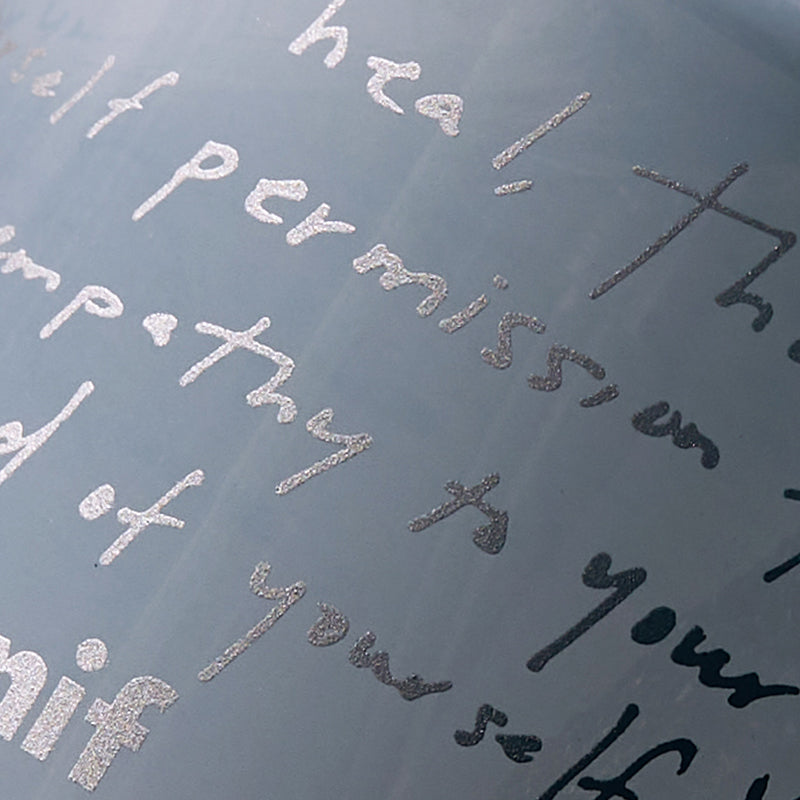 heal,
self permission
mpathy to your
d of yourself
nif